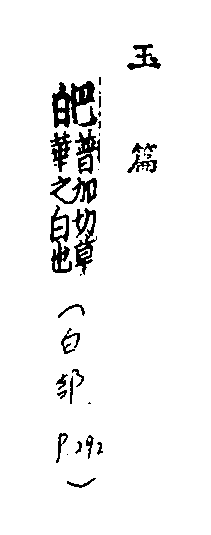 玉篇
皅普加切草
華之白也
(白部. P.292)